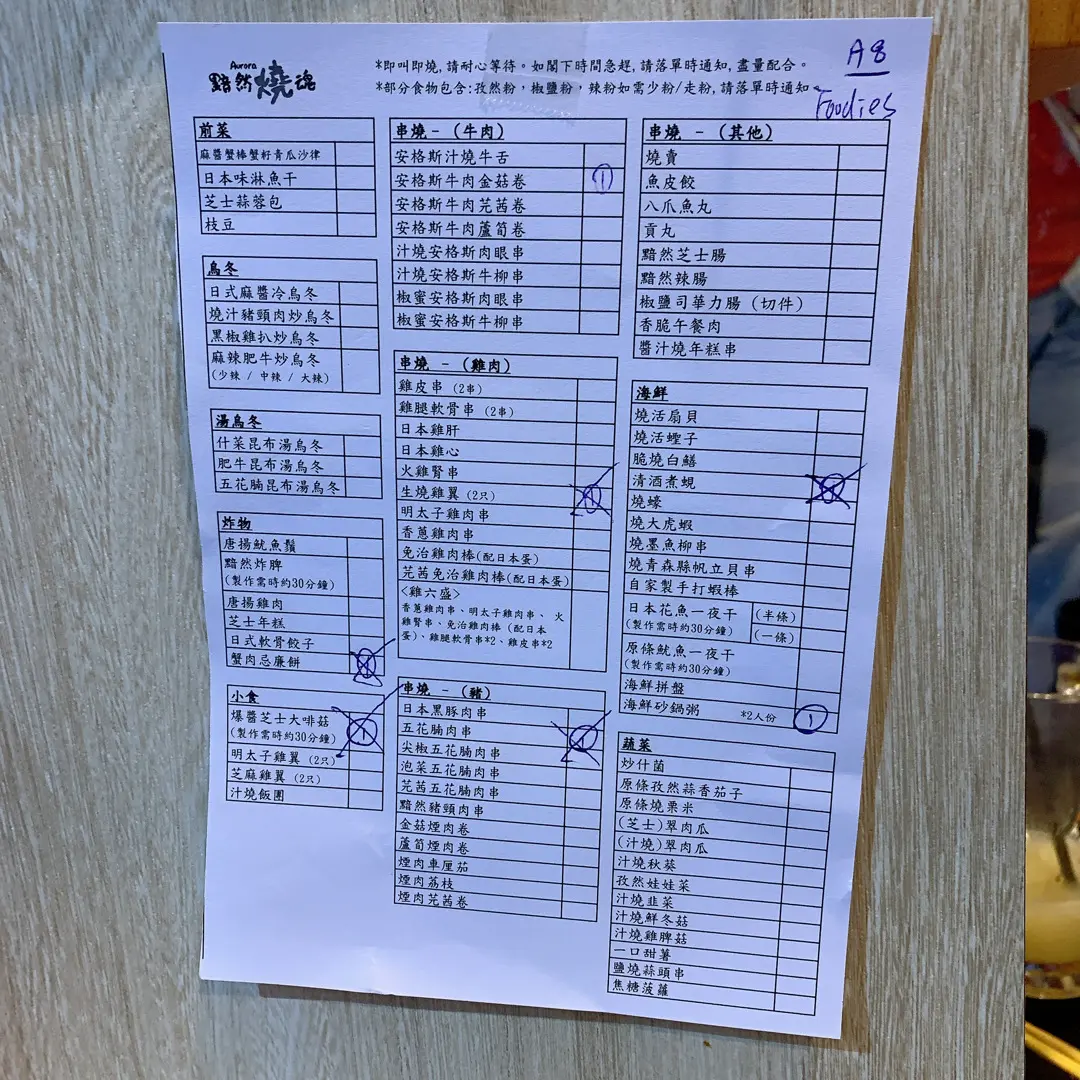 Aurora
黯然燒魂
*即叫即燒,請耐心等待。如閣下時間急趕,請落單時通知,盡量配合。
*部分食物包含:孜然粉,椒鹽粉,辣粉如需少粉/走粉,請落單時通知。
A8
Foodies
前菜
麻醬蟹棒蟹籽青瓜沙律
日本味淋魚干
芝士蒜蓉包
枝豆
烏冬
日式麻醬冷烏冬
燒汁豬頸肉炒烏冬
黑椒雞扒炒烏冬
麻辣肥牛炒烏冬
(少辣 / 中辣 / 大辣)
湯烏冬
什菜昆布湯烏冬
肥牛昆布湯烏冬
五花腩昆布湯烏冬
炸物
唐揚魷魚鬚
黯然炸脾
(製作需時約30分鐘)
唐揚雞肉
芝士年糕
日式軟骨餃子
蟹肉忌廉餅
小食
爆醬芝士大啡菇
(製作需時約30分鐘)
1
明太子雞翼 (2只)
芝麻雞翼 (2只)
汁燒飯團
串燒 - (牛肉)
安格斯汁燒牛舌
安格斯牛肉金菇卷
1
安格斯牛肉芫茜卷
安格斯牛肉蘆筍卷
汁燒安格斯肉眼串
汁燒安格斯牛柳串
椒蜜安格斯肉眼串
椒蜜安格斯牛柳串
串燒 - (雞肉)
雞皮串 (2串)
雞腿軟骨串 (2串)
日本雞肝
日本雞心
火雞腎串
生燒雞翼 (2只)
明太子雞肉串
香蔥雞肉串
免治雞肉棒(配日本蛋)
芫茜免治雞肉棒(配日本蛋)
<雞六盛>
香蔥雞肉串、明太子雞肉串、 火
雞腎串、免治雞肉棒 (配日本
蛋)、雞腿軟骨串*2、雞皮串*2
串燒 - (豬)
日本黑豚肉串
五花腩肉串
尖椒五花腩肉串
泡菜五花腩肉串
芫茜五花腩肉串
黯然豬頸肉串
金菇煙肉卷
蘆筍煙肉卷
煙肉車厘茄
煙肉荔枝
煙肉芫茜卷
串燒 - (其他)
燒賣
魚皮餃
八爪魚丸
貢丸
黯然芝士腸
黯然辣腸
椒鹽司華力腸 (切件)
香脆午餐肉
醬汁燒年糕串
海鮮
燒活扇貝
燒活蟶子
脆燒白鱔
清酒煮蜆
燒蠔
燒大虎蝦
燒墨魚柳串
燒青森縣帆立貝串
自家製手打蝦棒
日本花魚一夜干 (半條)
(製作需時約30分鐘) (一條)
原條魷魚一夜干
(製作需時約30分鐘)
海鮮拼盤
海鮮砂鍋粥 *2人份 1
蔬菜
炒什菌
原條孜然蒜香茄子
原條燒粟米
(芝士)翠肉瓜
(汁燒)翠肉瓜
汁燒秋葵
孜然娃娃菜
汁燒韭菜
汁燒鮮冬菇
汁燒雞脾菇
一口甜薯
鹽燒蒜頭串
焦糖菠蘿